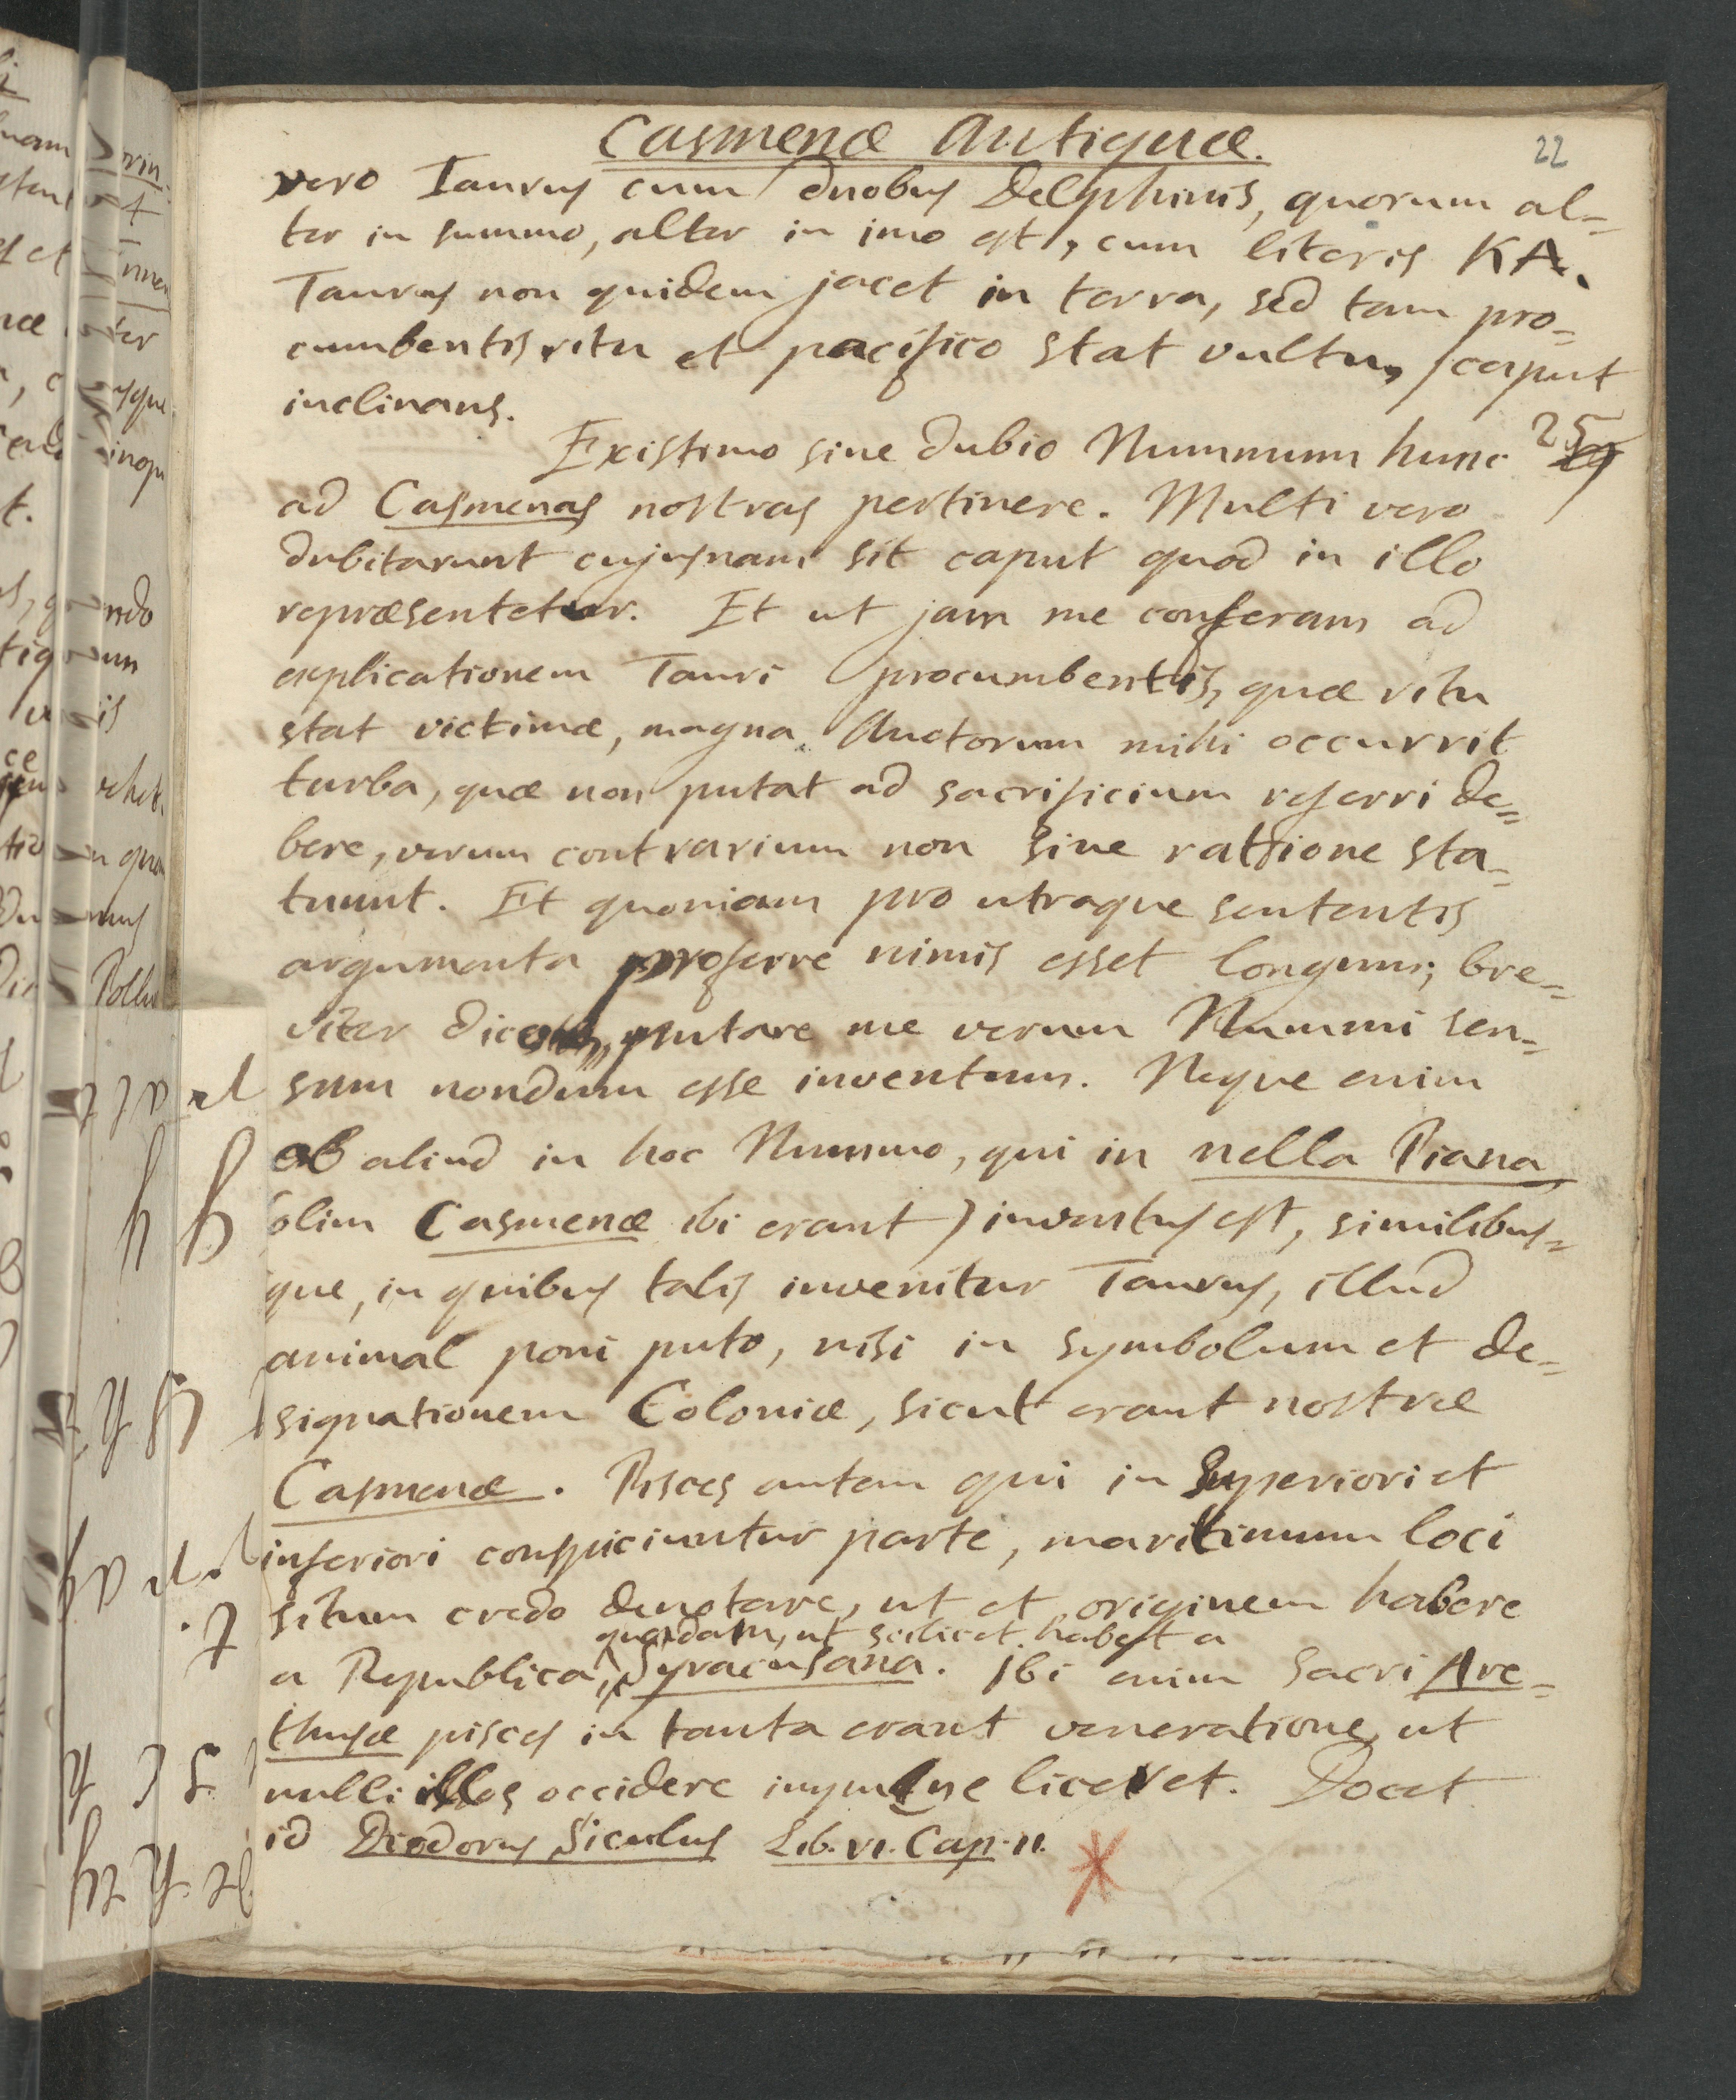 Casmenæ Antiquæ.
22
vero Taurus cum duobus Delphinis, quorum al=
ter in summo, alter in imo est, cum literis KA.
Taurus non quidem jacet in terra, sed tam pro=
cumbentis ritu et pacifico stat vultu, caput
inclinans.
Existimo sine dubio Nummum hunc
25
ad Casmenas nostras pertinere. Multi vero
dubitarunt cujusnam sit caput quod in illo
repræsentetur. Et ut jam me conferam ad
explicationem Tauri procumbentis, quæ ritu
stat victimæ, magna Auctorum mihi occurrit
turba, quæ non putat ad sacrificium referri de=
bere, verum contrarium non sine rattione sta=
tuunt. Et quoniam pro utraque sententis
argumenta proferre nimis esset longum; bre=
viter dicam, putare me verum Nummi sen=
sum nondum esse inventum. Neque enim
ob aliud in hoc Nummo, qui in nella Piana
(olim Casmenæ ibi erant) inventus est, similibus=
que, in quibus talis invenitur Taurus, illud
animal poni puto, nisi in symbolum et de=
signationem Coloniæ, sicut erant nostræ
Casmenæ. Pisces autem qui in Superiori et
inferiori conspiciuntur parte, maritimum loci
situm credo denotare, ut et originem habere
quandam, ut scilicet habest a
a Republica, Syracusana. Ibi enim sacri Are=
thusæ pisces in tanta erant veneratione, ut
nulli illos occidere impune liceret. Docet
id Diodorus Siculus Lib. VI. Cap. II.